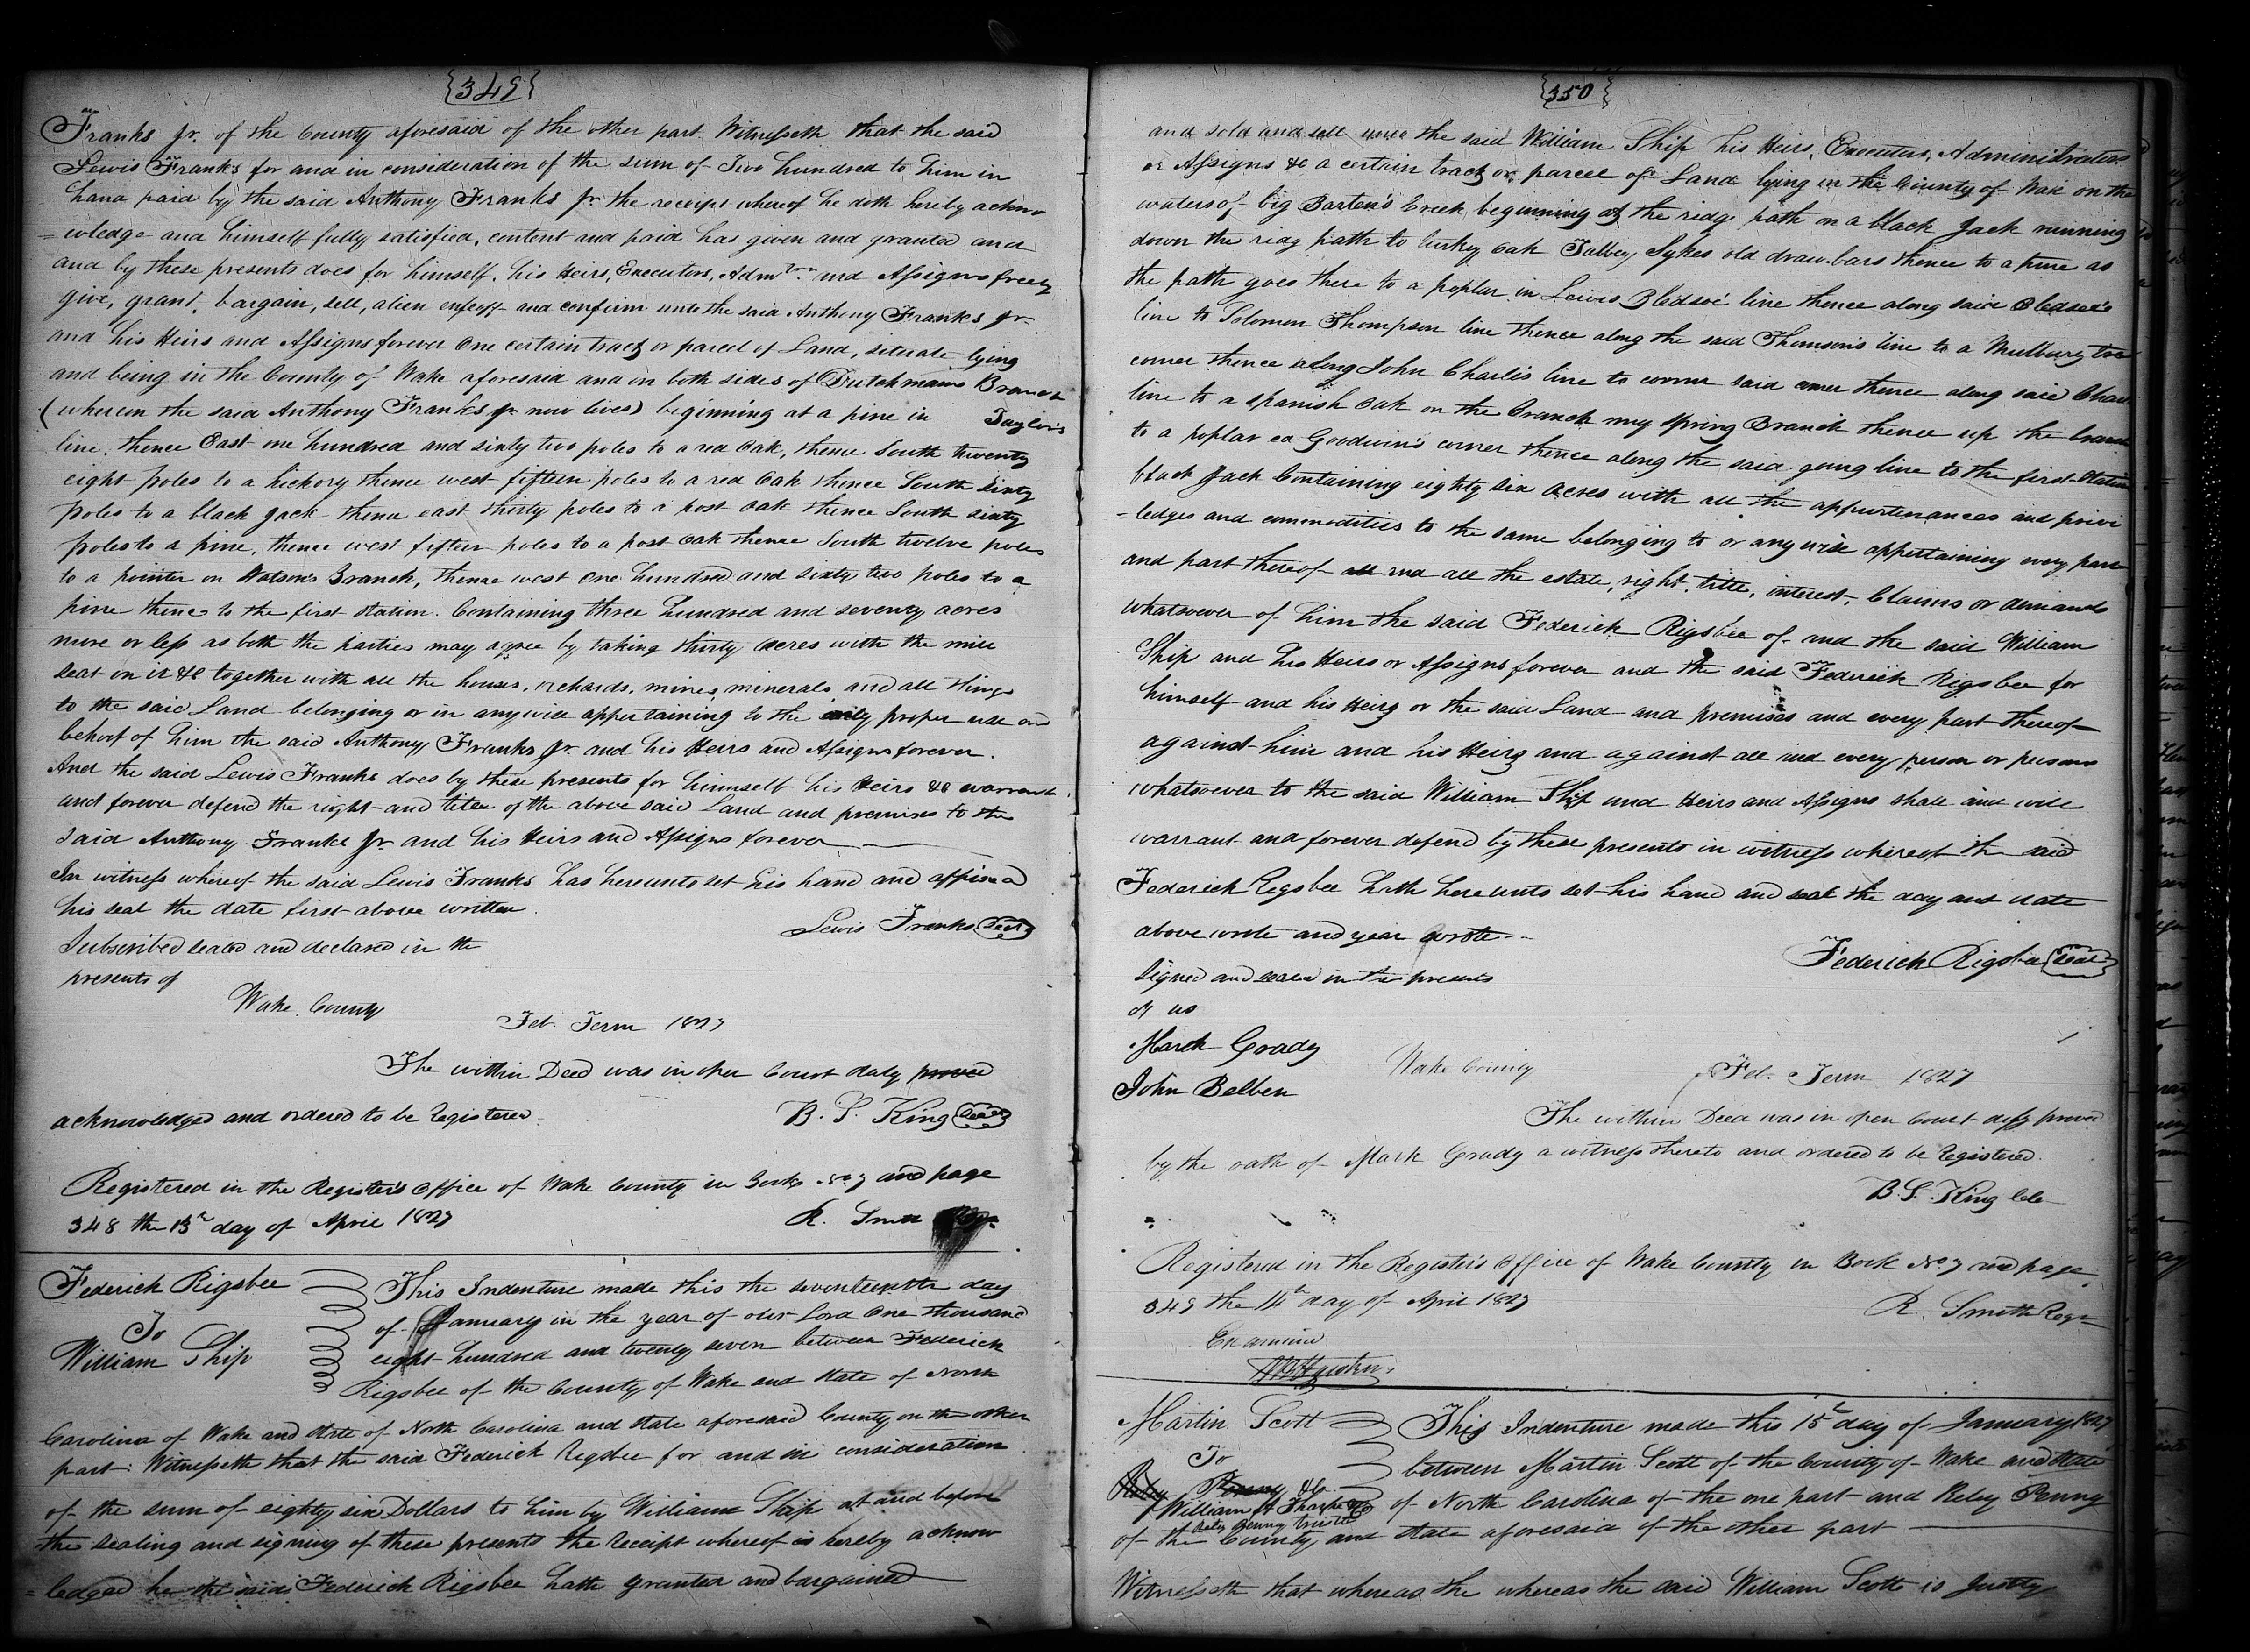 {349}
Franks Jr. of the County aforesaid of the other part Witnesseth that the said
Lewis Franks for and in consideration of the sum of Two hundred to him in
hand paid by the said Anthony Franks Jr. the receipt whereof he doth hereby ackno
=wledge and himself fully satisfied, content and paid has given and granted and
and by these presents does for himself, his Heirs, Executors, Admtrs and Assigns freely
give, grant, bargain, sell, alien enfeoff and confirm unto the said Anthony Franks Jr.
and his Heirs and Assigns forever One certain tract or parcel of Land, situate lying
and being in the County of Wake aforesaid and on both sides of Dutchmans Branch
(wherein the said Anthony Franks Jr now lives) beginning at a pine in Taylor's
line, thence East one hundred and sixty two poles to a red Oak, thence South twenty
eight poles to a hickory thence west fifteen poles to a red Oak thence South sixty
poles to a black jack thence east thirty poles to a post oak thence South sixty
poles to a pine, thence west fifteen poles to a post oak thence South twelve poles
to a pointer on Watson's Branch, thence west one hundred and sixty two poles to a
pine thence to the first station. Containing three hundred and seventy acres
more or less as both the parties may agree by taking thirty acres with the mill
seat on it &c together with all the houses, orchards, mines, minerals and all things
to the said Land belonging or in any wise appertaining to the only proper use and
behoof of him the said Anthony Franks Jr. and his Heirs and Assigns forever.
And the said Lewis Franks does by these presents for himself his Heirs &c warrant
and forever defend the right and title of the above said Land and premises to the
said Anthony Franks Jr. and his Heirs and Assigns forever
In witness whereof the said Lewis Franks has hereunto set his hand and affixed
his seal the date first above written.
Lewis Franks (Seal)
Subscribed sealed and declared in the
presents of
Wake County
Feb. Term 1827
The within Deed was in open Court duly proved
acknowledged and ordered to be Registered.
B. S. King
Registered in the Register's Office of Wake County in Book No 7 and page
348 the 13th day of April 1827
R. Smith Regr.
Federick Rigsbee
To
William Ship
This Indenture made this the seventeenth day
of January in the year of our Lord One thousand
eight hundred and twenty seven between Federick
Rigsbee of the County of Wake and State of North
Carolina of Wake and State of North Carolina and State aforesaid County on the other
part: Witnesseth that the said Federick Rigsbee for and in consideration
of the sum of eighty six Dollars to him by William Ship at and before
the sealing and signing of these presents the Receipt whereof is hereby acknow
=ledged he the said Federick Rigsbee hath granted and bargained
{350}
and sold and sell unto the said William Ship his Heirs, Executors, Administrators
or Assigns &c a certain tract or parcel of Land lying in the County of Wake on the
waters of big Barton's Creek, beginning at the ridge path on a black Jack running
down the ridg path to turkey oak Tabbey Sykes old draw-bars thence to a pine as
the path goes there to a poplar in Lewis Bledsoe' line thence along said Bledsoe's
line to Solomon Thompson line thence along the said Thomson's line to a Mulbury tree
corner thence along John Charles line to corner said corner thence along said
line to a Spanish Oak on the branch my Spring Branch thence up the branch
to a poplar ea Goodwin's corner thence along the said going line to the first Station
black Jack Containing eighty six Acres with all the appurtenances and privi
=ledges and commodities to the same belonging to or any wise appertaining every part
and part thereof all and all the estate, right, title, interest, Claims or demands
whatsoever of him the said Federick Rigsbee of and the said William
Ship and his Heirs or Assigns forever and the said Federick Rigsbee for
himself and his Heirs or the said Land and premises and every part thereof
against him and his Heirs and against all and every person or persons
whatsoever to the said William Ship and Heirs and Assigns shall and will
warrant and forever defend by these presents in witness whereof the said
Federick Rigsbee hath hereunto set his hand and seal the day and date
above wrote and year wrote.
Federick Rigsbee (Seal)
Signed and sealed in the presents
of us
Mark Grady
John Belben
Wake County
Feb. Term 1827
The within Deed was in open Court duly proved
by the oath of Mark Grady a witness thereto and ordered to be Registered.
B. S. King Clk
Registered in the Register's Office of Wake County in Book No 7 and page
349 the 14th day of April 1827
R. Smith Regr
Examined
Martin Scott
To
William H Tharpe
Reley Penny trustee
This Indenture made this 15th day of January 1827
between Martin Scott of the County of Wake and State
of North Carolina of the one part and Reley Penny
of the County and State aforesaid of the other part
Witnesseth that whereas the whereas the said William Scott is justly